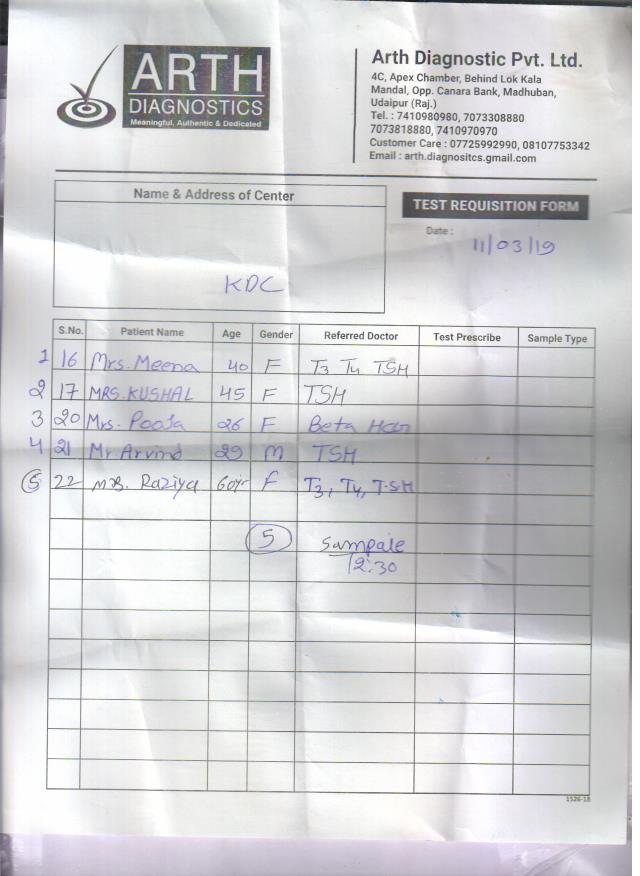 ARTH
DIAGNOSTICS
Meaningful, Authentic & Dedicated
Arth Diagnostic Pvt. Ltd.
4C, Apex Chamber, Behind Lok Kala
Mandal, Opp. Canara Bank, Madhuban,
Udaipur (Raj.)
Tel. : 7410980980, 7073308880
7073818880, 7410970970
Customer Care : 07725992990, 08107753342
Email : arth.diagnositcs.gmail.com
Name & Address of Center
KDC
TEST REQUISITION FORM
Date : 11/03/19
S.No. Patient Name Age Gender Referred Doctor Test Prescribe Sample Type
1 16 Mrs. Meena 40 F T3 T4 TSH
2 17 MRS. KUSHAL 45 F TSH
3 20 Mrs. Pooja 26 F Beta HCG
4 21 Mr Arvind 29 M TSH
5 22 Mrs. Raziya 60yr F T3, T4, T.S.H
5 Sampale
12:30
1526-18